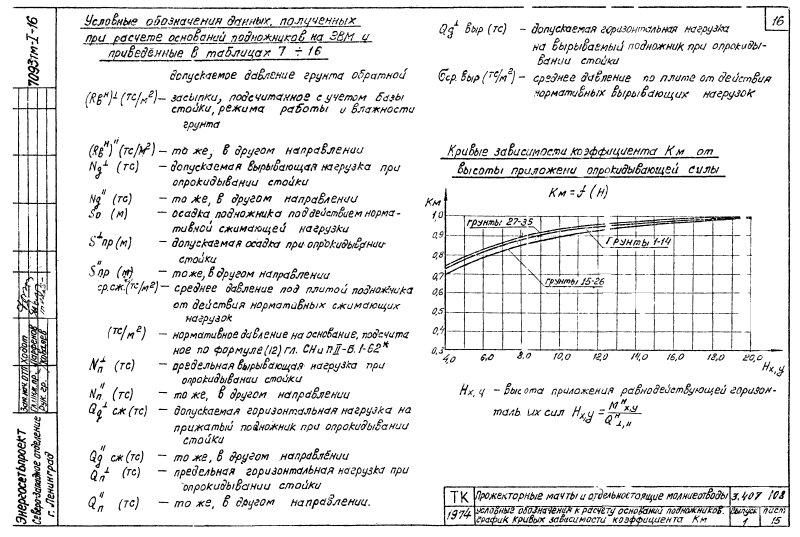 16
70937тм-I-16
Условные обозначения данных, полученных
при расчете оснований подножников на ЭВМ и
приведённые в таблицах 7 ÷ 16
допускаемое давление грунта обратной
(Rвᴴ)⊥ (тс/м²) – засыпки, подсчитанное с учетом базы
стойки, режима работы и влажности
грунта
(Rвᴴ)" (тс/м²) – то же, в другом направлении
Nд⊥ (тс) – допускаемая вырывающая нагрузка при
опрокидывании стойки
Nд" (тс) – то же, в другом направлении
Sо (м) – осадка подножника под действием норма-
тивной сжимающей нагрузки
S⊥пр (м) – допускаемая осадка при опрокидывании
стойки
S"пр (м) – то же, в другом направлении
ср.сж. (тс/м²) – среднее давление под плитой подножника
от действия нормативных сжимающих
нагрузок
(тс/м²) – нормативное давление на основание, подсчита
ное по формуле (12) гл. СНиП II-Б.1-62*
Nп⊥ (тс) – предельная вырывающая нагрузка при
опрокидывании стойки
Nп" (тс) – то же, в другом направлении
Qд⊥ сж (тс) – допускаемая горизонтальная нагрузка на
прижатый подножник при опрокидывании
стойки
Qд" сж (тс) – то же, в другом направлении
Qп⊥ (тс) – предельная горизонтальная нагрузка при
опрокидывании стойки
Qп" (тс) – то же, в другом направлении.
Qд⊥ выр (тс) – допускаемая горизонтальная нагрузка
на вырываемый подножник при опрокиды-
вании стойки
бср. выр (тс/м²) – среднее давление по плите от действия
нормативных вырывающих нагрузок
Кривые зависимости коэффициента Км от
высоты приложени опрокидывающей силы
Км = f (H)
Км
1,0
0,9
0,8
0,7
0,6
0,5
0,4
0,3
грунты 27-35
Грунты 1-14
грунты 15-26
4,0 6,0 8,0 10,0 12,0 14,0 16,0 18,0 20,0
Hх,у
Hх,у – высота приложения равнодействующей горизон-
тальных сил Hх,у = Mᴴх,у / Qᴴ⊥,"
Энергосетьпроект
Северо-Западное отделение
г. Ленинград
ТК Прожекторные мачты и отдельностоящие молниеотводы 3.407 108
1974 Условные обозначения к расчету оснований подножников. График кривых зависимости коэффициента Км
Выпуск 1
лист 15